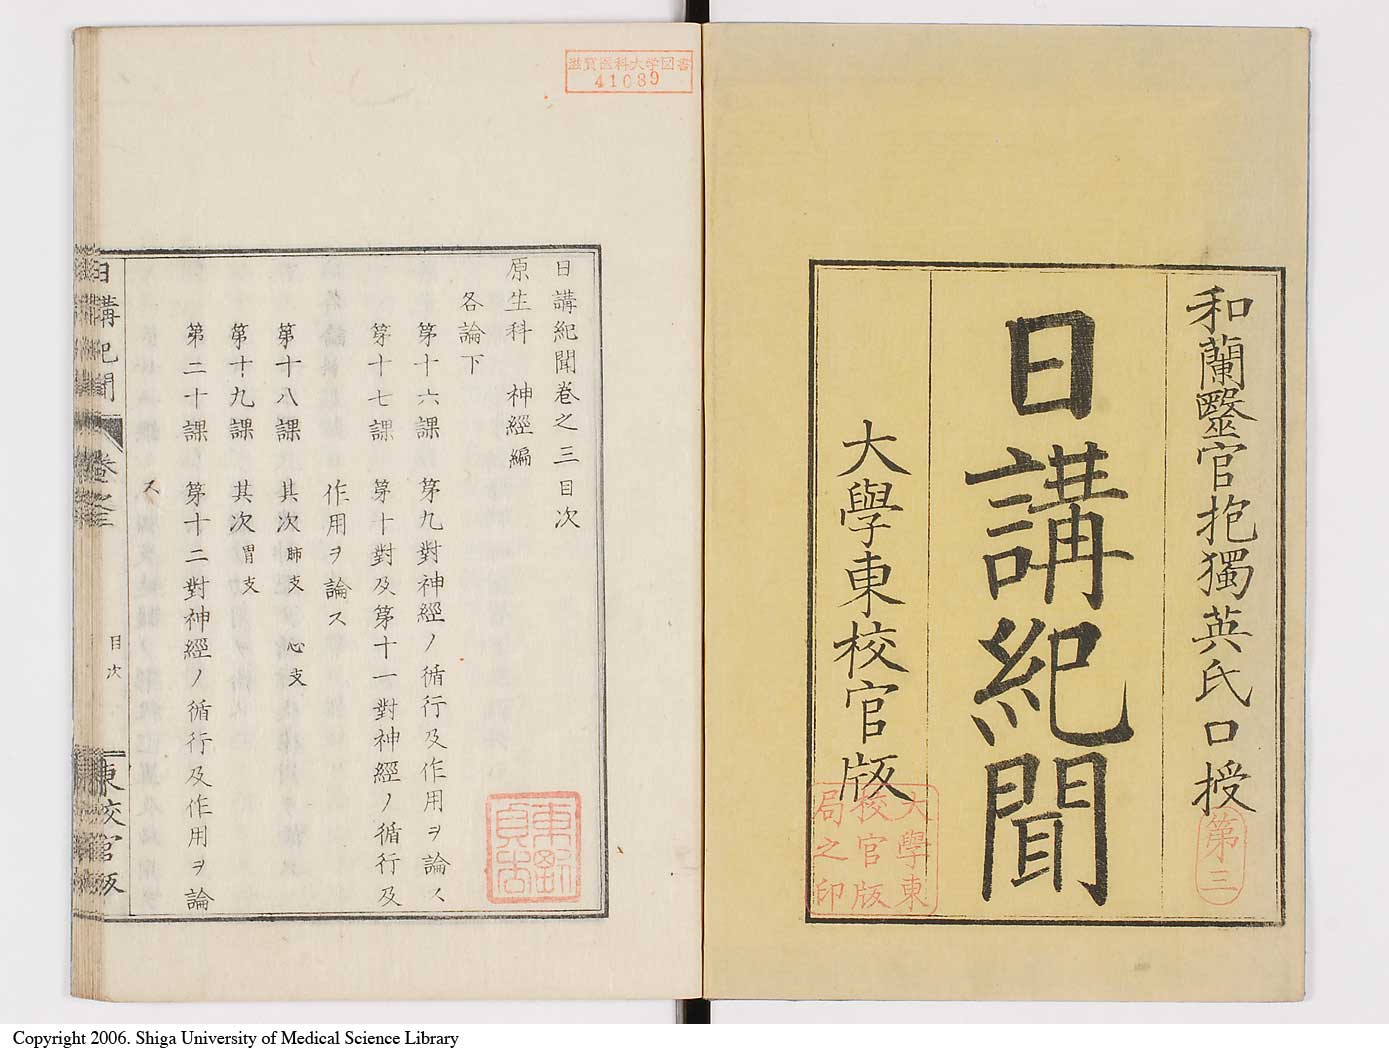 和蘭醫官抱獨英氏口授
第三
日講紀聞
大學東校官版
大學東
校官版
局之印
滋賀医科大学図書
41089
日講紀聞卷之三目次
原生科 神經編
各論下
第十六課 第九對神經ノ循行及作用ヲ論ス
第十七課 第十對及第十一對神經ノ循行及
作用ヲ論ス
第十八課 其次 肺支 心支
第十九課 其次 胃支
第二十課 第十二對神經ノ循行及作用ヲ論
ス
日講紀聞 卷之三 目次 東校官版
Copyright 2006. Shiga University of Medical Science Library